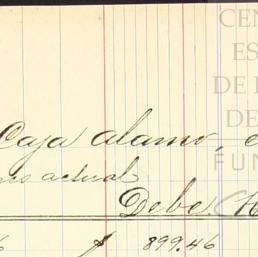 CEN
ES
DE
DE
FUN
Caja alamo, e
actual
Debe. H
6 $ 899.46